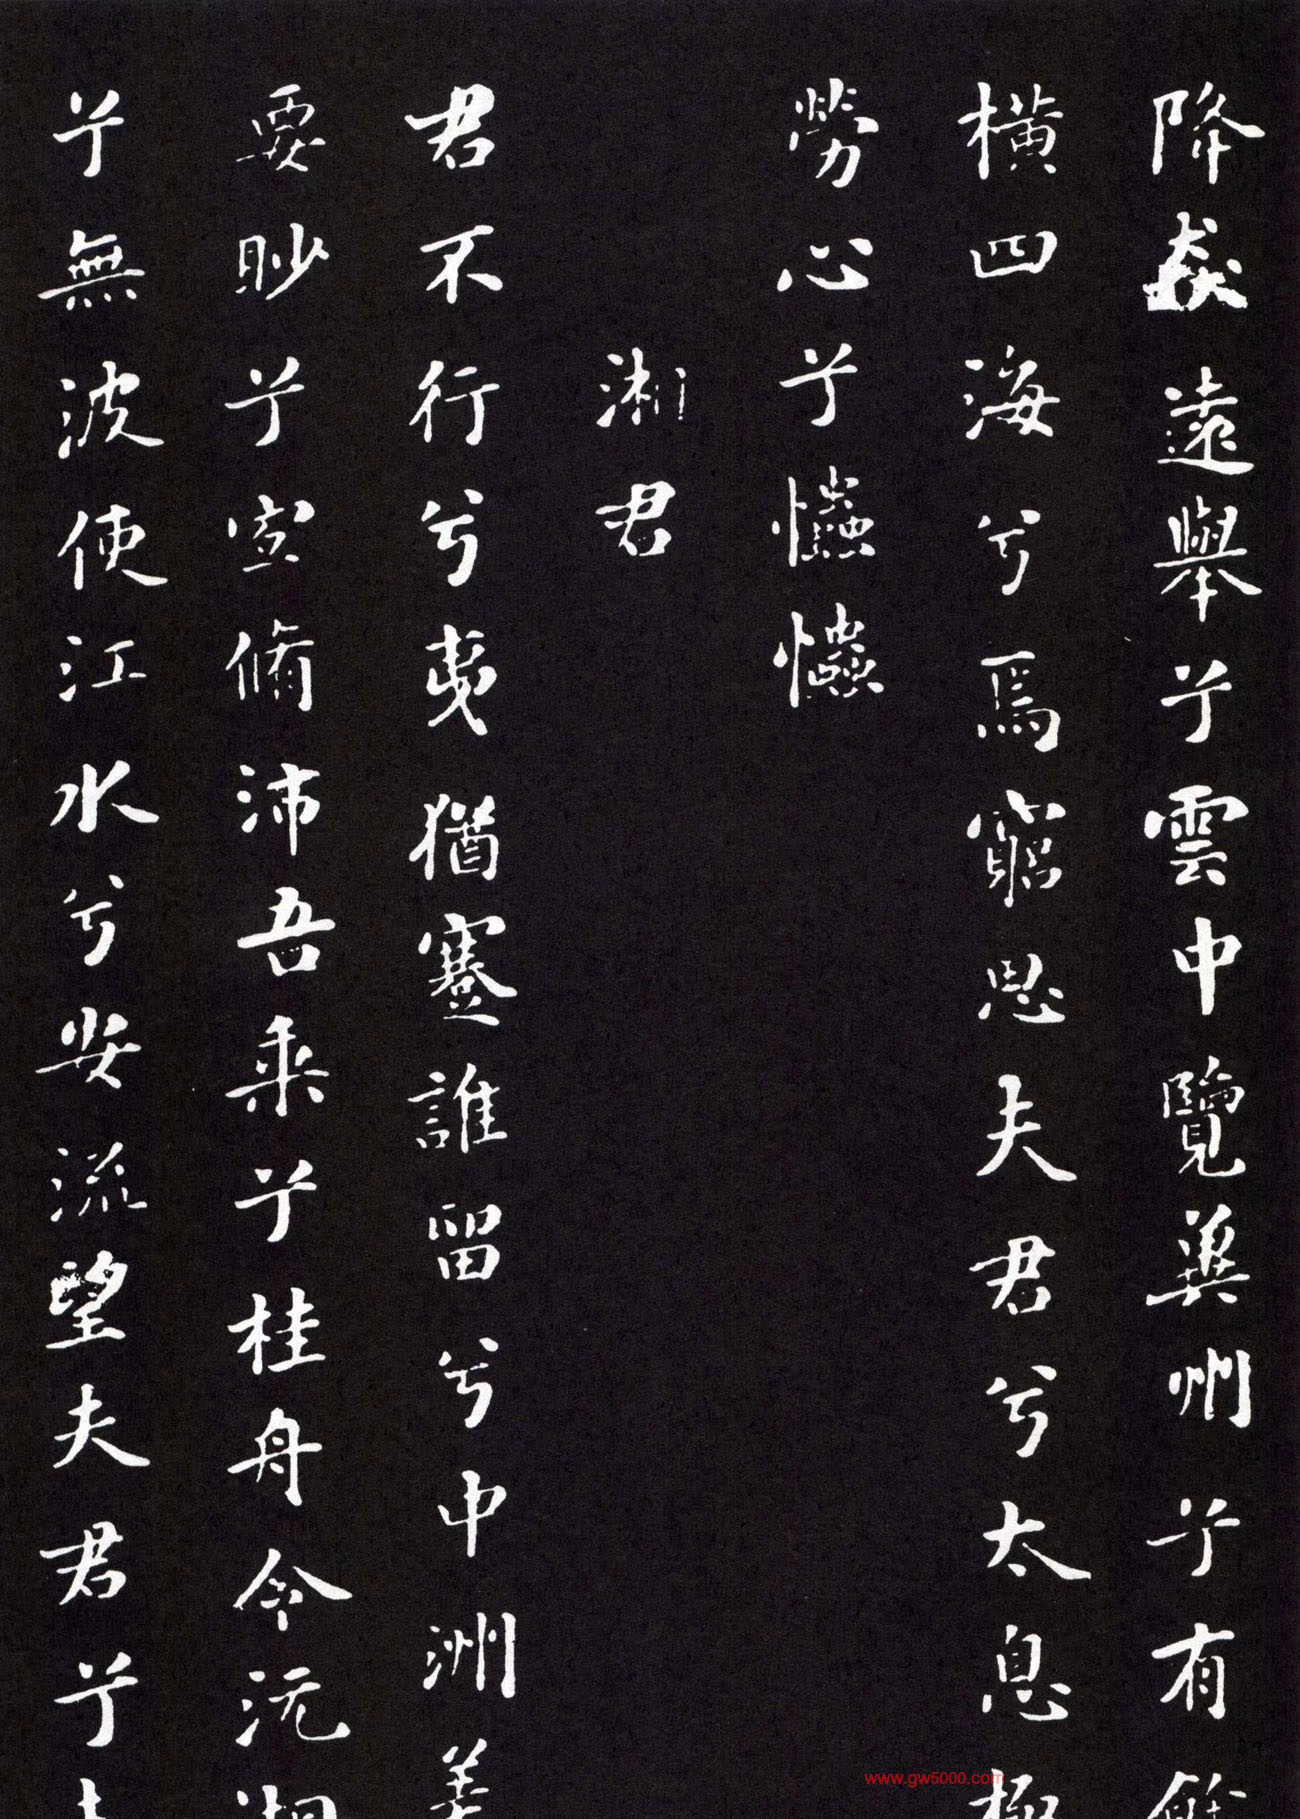 降猋遠舉兮雲中覽冀州兮有餘
橫四海兮焉窮思夫君兮太息極
勞心兮爞爞
湘君
君不行兮夷猶蹇誰留兮中洲美
要眇兮宜脩沛吾乘兮桂舟令沅湘
兮無波使江水兮安流望夫君兮未
www.gw5000.com